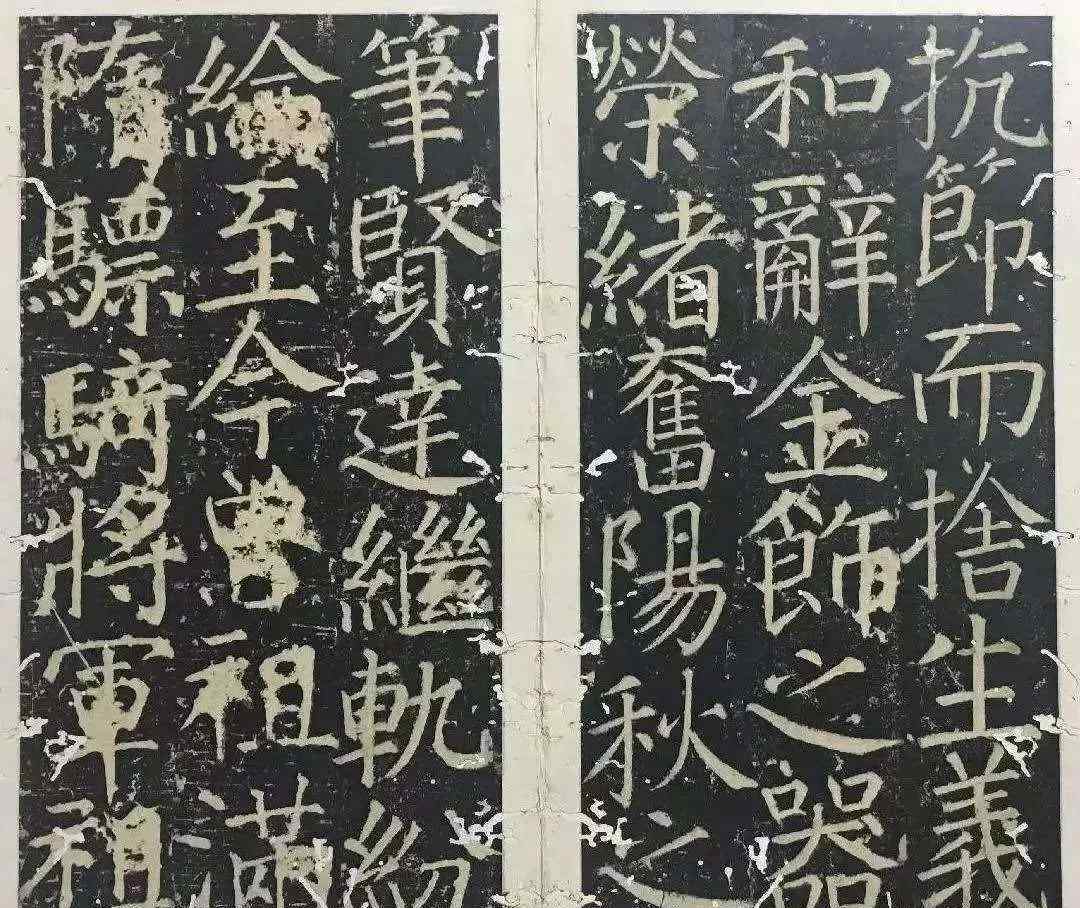 抗節而捨生義
和辭金飾之器
榮緒奮陽秋之
筆賢達繼軌紛
綸至今曾祖滿
隋驃騎將軍